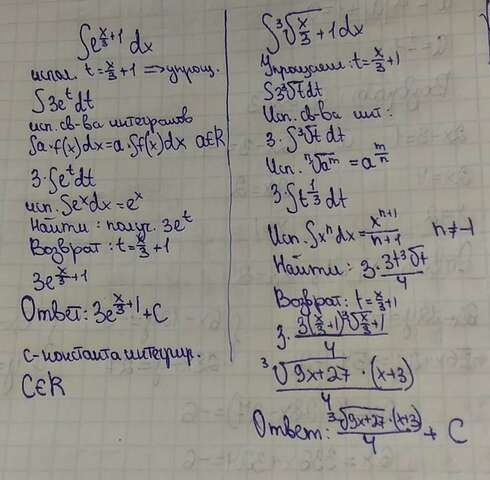 ∫e^(x/3+1) dx
испол. t = x/3 + 1 => упрощ.
∫3e^t dt
исп. св-ва интегралов
∫a·f(x)dx = a·∫f(x)dx a∈R
3·∫e^t dt
исп. ∫e^x dx = e^x
Найти: получ. 3e^t
Возврат: t = x/3 + 1
3e^(x/3+1)
Ответ: 3e^(x/3+1) + C
с-константа интегрир.
C∈R
∫∛(x/3 + 1) dx
Упрощаем: t = x/3 + 1
∫3∛t dt
Исп. св-ва инт:
3·∫∛t dt
Исп. ⁿ√a^m = a^(m/n)
3·∫t^(1/3) dt
Исп. ∫x^n dx = x^(n+1)/(n+1) n≠-1
Найти: 3·3t∛t/4
Возврат: t = x/3 + 1
3·3(x/3+1)∛(x/3+1)/4
∛(9x+27)·(x+3)/4
Ответ: ∛(9x+27)·(x+3)/4 + C